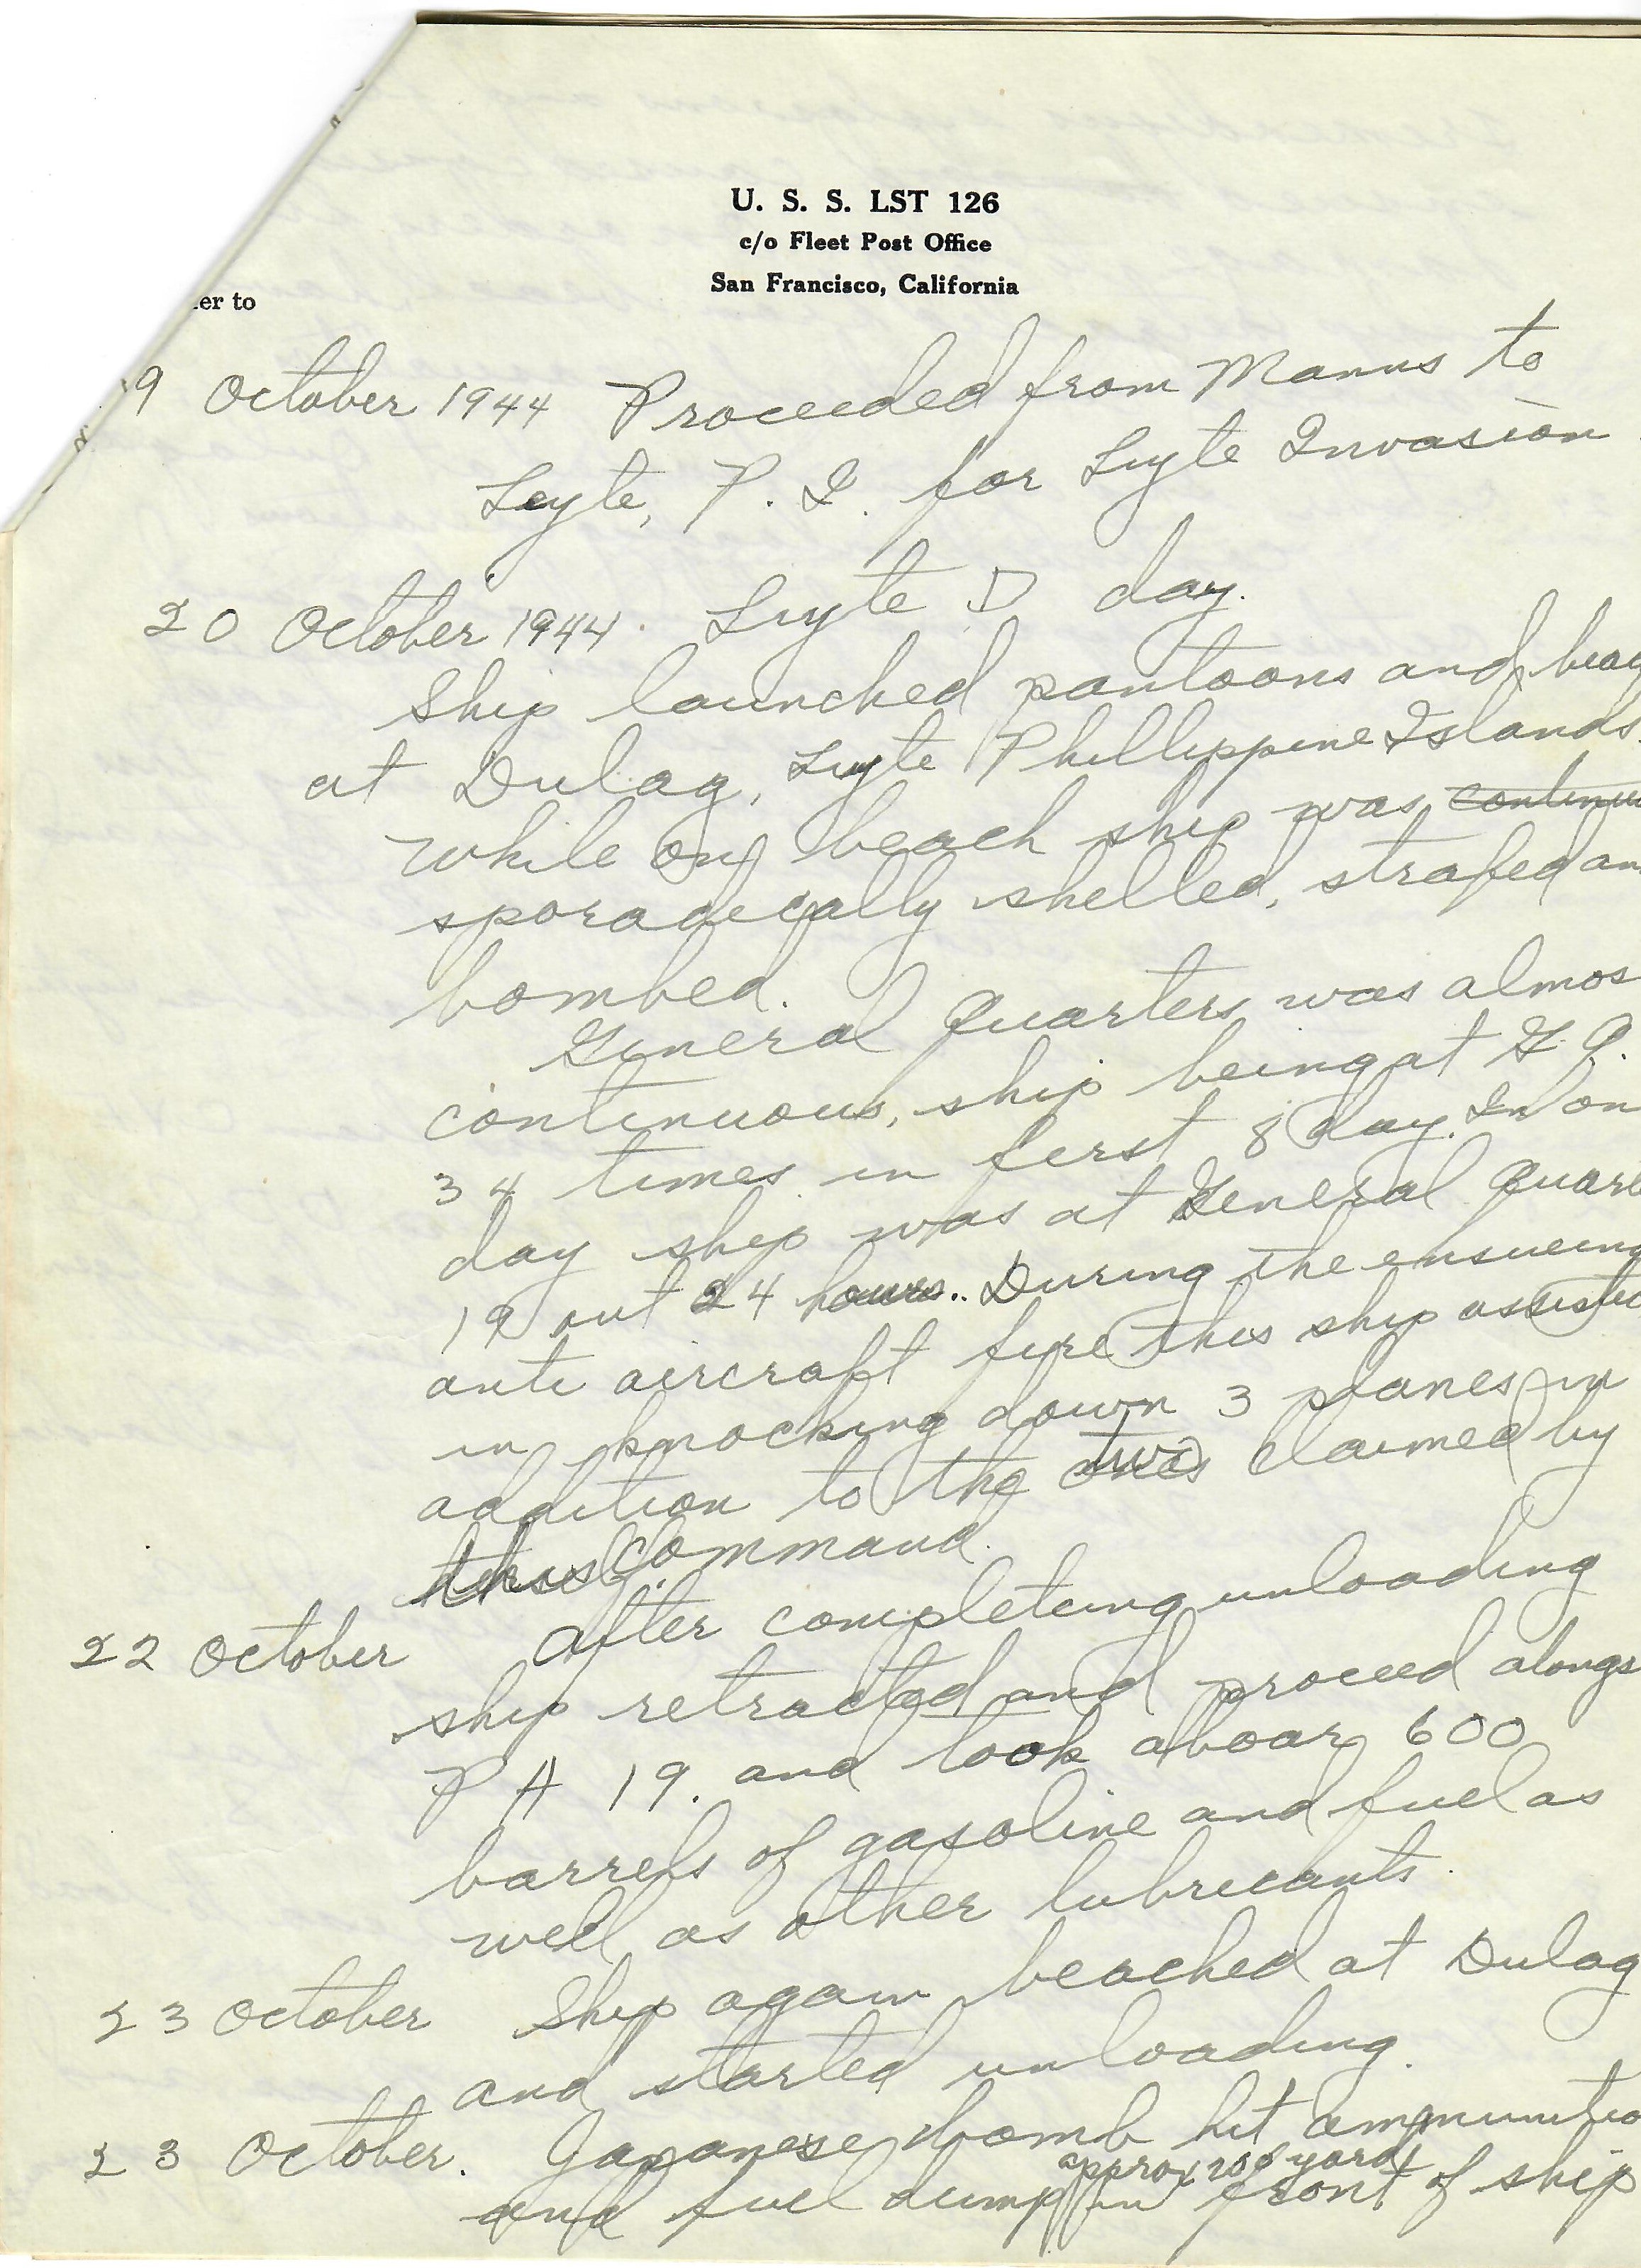 U. S. S. LST 126
c/o Fleet Post Office
San Francisco, California
er to
9 October 1944 Proceeded from Manus to
Leyte, P. I. for Leyte Invasion
20 October 1944. Leyte D day.
Ship launched pantoons and
at Dulag, Leyte Phillippine Islands.
While on beach ship was
sporadically shelled, strafed an
bombed.
General Quarters was almos
continuous, ship being at G. Q.
34 times in first 8 day. In on
day ship was at General Quart
19 out 24 hours. During the ensueing
anti aircraft fire this ship assisted
in knocking down 3 planes in
addition to the two claimed by
this Command.
22 October After completeing unloading
ship retracted and proceed alongs
P A 19. and took aboar 600
barrels of gasoline and fuel as
well as other lubricants.
23 October Ship again beached at Dulag
and started unloading.
23 October. Japanese bomb hit ammunitio
approx 200 yard
and fuel dump in front of ship